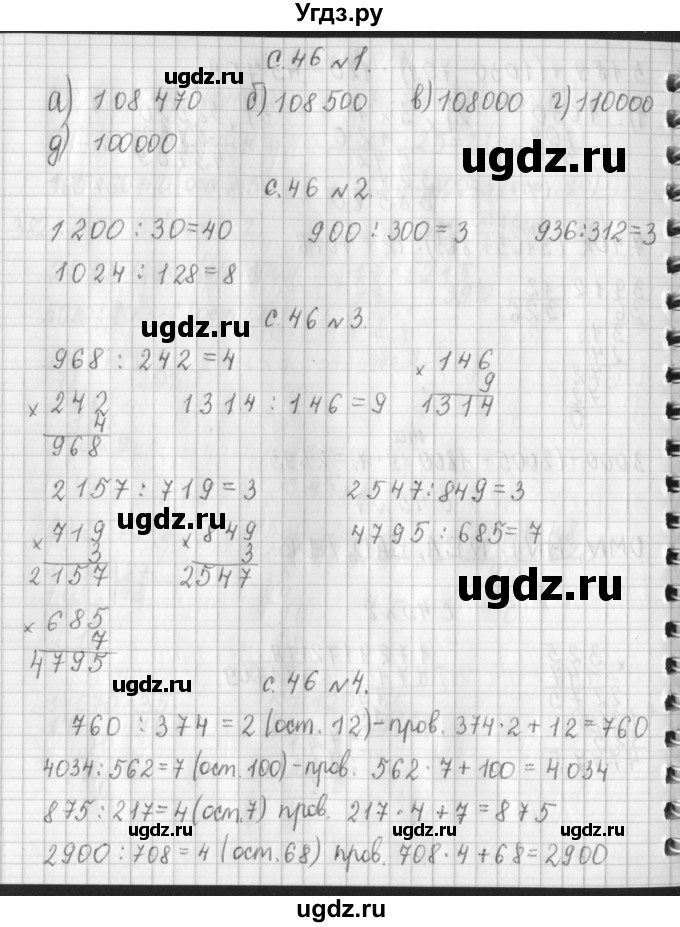 Угдз.ру
с. 46 №1.
а) 108 470 б) 108 500 в) 108000 г) 110000
д) 100000
с. 46 №2.
1200 : 30 = 40 900 : 300 = 3 936 : 312 = 3
1024 : 128 = 8
с. 46 №3.
968 : 242 = 4
× 146
9
1314
× 242
4
968
1314 : 146 = 9
2157 : 719 = 3 2547 : 849 = 3
× 719
3
2157
× 849
3
2547
4795 : 685 = 7
× 685
7
4795
с. 46 №4.
760 : 374 = 2 (ост. 12) - пров. 374 · 2 + 12 = 760
4034 : 562 = 7 (ост. 100) - пров. 562 · 7 + 100 = 4034
875 : 217 = 4 (ост. 7) пров. 217 · 4 + 7 = 875
2900 : 708 = 4 (ост. 68) пров. 708 · 4 + 68 = 2900
ugdz.ru
ugdz.ru
ugdz.ru
ugdz.ru
ugdz.ru
ugdz.ru
ugdz.ru
ugdz.ru
ugdz.ru
ugdz.ru
ugdz.ru